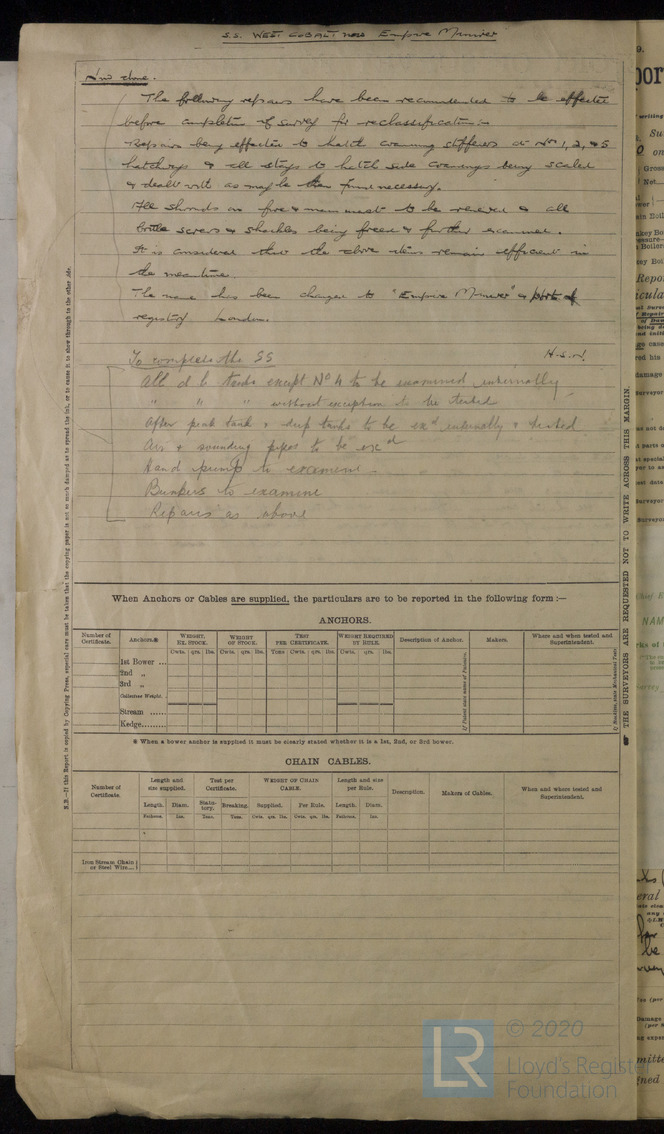 S.S. WEST COBALT now Empire Miniver
Now done.
The following repairs have been recommended to be effected
before completion of survey for reclassification:-
Repairs being effected to hatch coaming stiffeners at Nos 1, 2, & 5
hatchways & all stays to hatch side coamings being scaled
& dealt with as may be then found necessary.
All shrouds on fore & main mast to be renewed & all
bottle screws & shackles being freed & further examined.
It is considered that the above items remain efficient in
the meantime.
The name has been changed to "Empire Miniver" & port of
registry London.
H.S.N.
To complete the SS
All d b tanks except No 4 to be examined internally
" " " without exception to be tested
After peak tank & deep tanks to be exd internally & tested
Air & sounding pipes to be exd
Hand pump to examine
Bunkers to examine
Repairs as above
When Anchors or Cables are supplied, the particulars are to be reported in the following form :—
ANCHORS.
Number of Certificate. Anchors.* WEIGHT. EX. STOCK. WEIGHT OF STOCK. TEST PER CERTIFICATE. WEIGHT REQUIRED BY RULE. Description of Anchor. Makers. Where and when tested and Superintendent.
Cwts. qrs. lbs. Cwts. qrs. lbs. Tons Cwts. qrs. lbs. Cwts. qrs. lbs.
1st Bower ...
2nd „
3rd „
Collective Weight.
Stream ......
Kedge.........
* When a bower anchor is supplied it must be clearly stated whether it is a 1st, 2nd, or 3rd bower.
CHAIN CABLES.
Number of Certificate. Length and size supplied. Test per Certificate. WEIGHT OF CHAIN CABLE. Length and size per Rule. Description. Makers of Cables. When and where tested and Superintendent.
Length. Diam. Statutory. Breaking. Supplied. Per Rule. Length. Diam.
Fathoms. Ins. Tons. Tons. Cwts. qrs. lbs. Cwts. qrs. lbs. Fathoms. Ins.
Iron Stream Chain
or Steel Wire
N.B.—If this Report is copied by Copying Press, especial care must be taken that the copying paper is not so much damped as to spread the ink, or to cause it to show through to the other side.
THE SURVEYORS ARE REQUESTED NOT TO WRITE ACROSS THIS MARGIN.
LR
© 2020
Lloyd's Register
Foundation